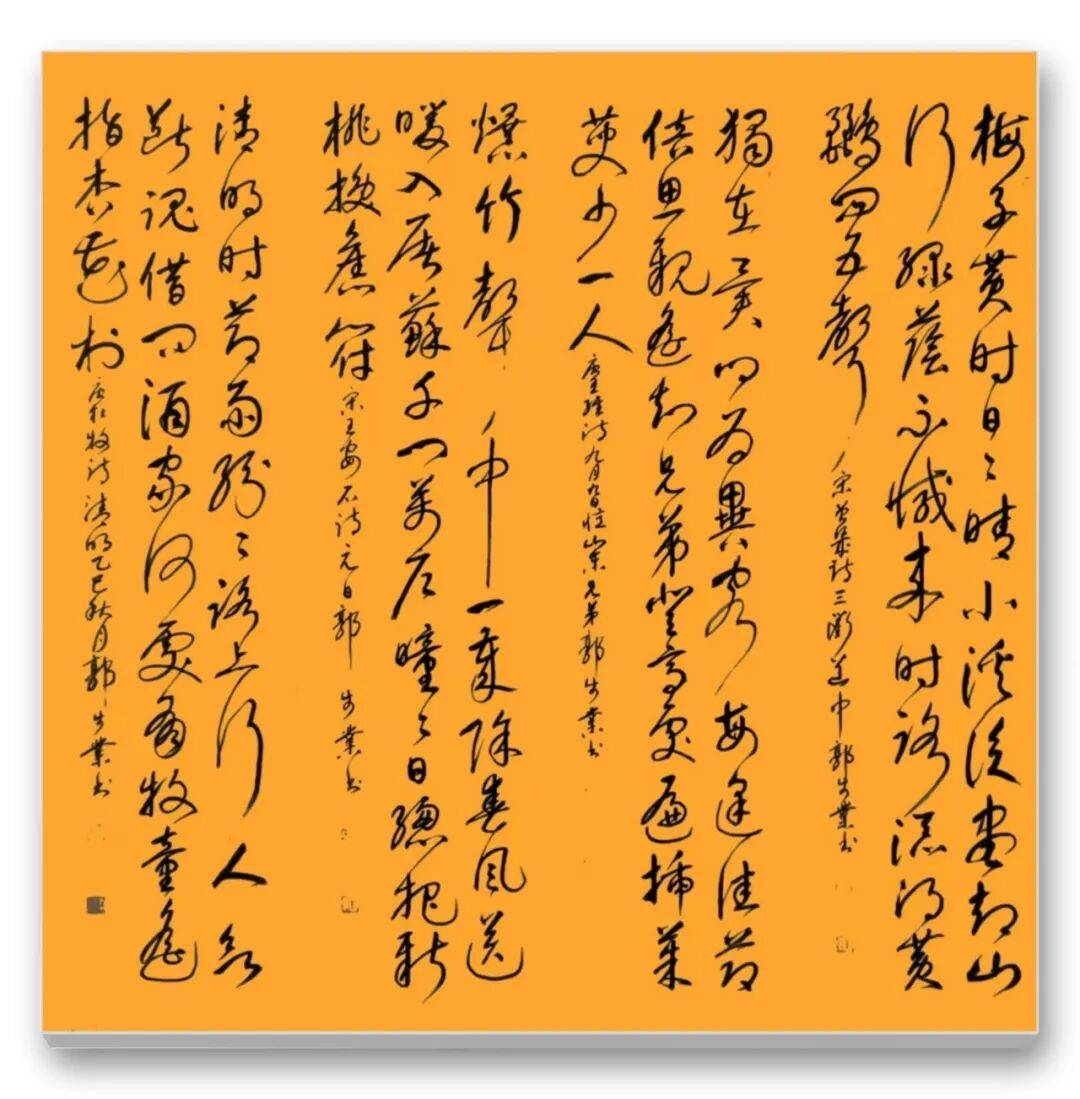 梅子黄时日〻晴小溪泛尽却山
行绿荫不减来时路添得黄
鹂四五声 宋曾几诗三衢道中郭業书
獨在異乡为異客每逢佳节
倍思親遥知兄弟登高处遍插茱
萸少一人 唐王维诗九月九日忆山东兄弟郭業书
爆竹聲中一歲除春風送
暖入屠蘇千门萬户曈〻日總把新
桃換舊符 宋王安石诗元日郭業书
清明时节雨纷〻路上行人欲
断魂借问酒家何處有牧童遥
指杏花村 唐杜牧诗清明乙巳秋月郭業书